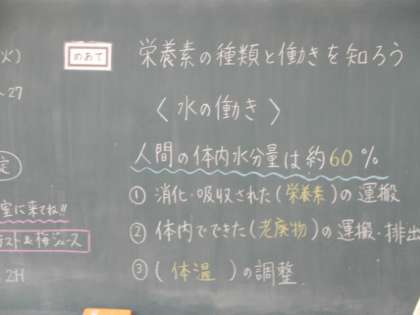 めあて
栄養素の種類と働きを知ろう
〈水の働き〉
人間の体内水分量は約60%
① 消化・吸収された(栄養素)の運搬
② 体内でできた(老廃物)の運搬・排出
③ (体温)の調整
火)
27
室に来てね!!
2H